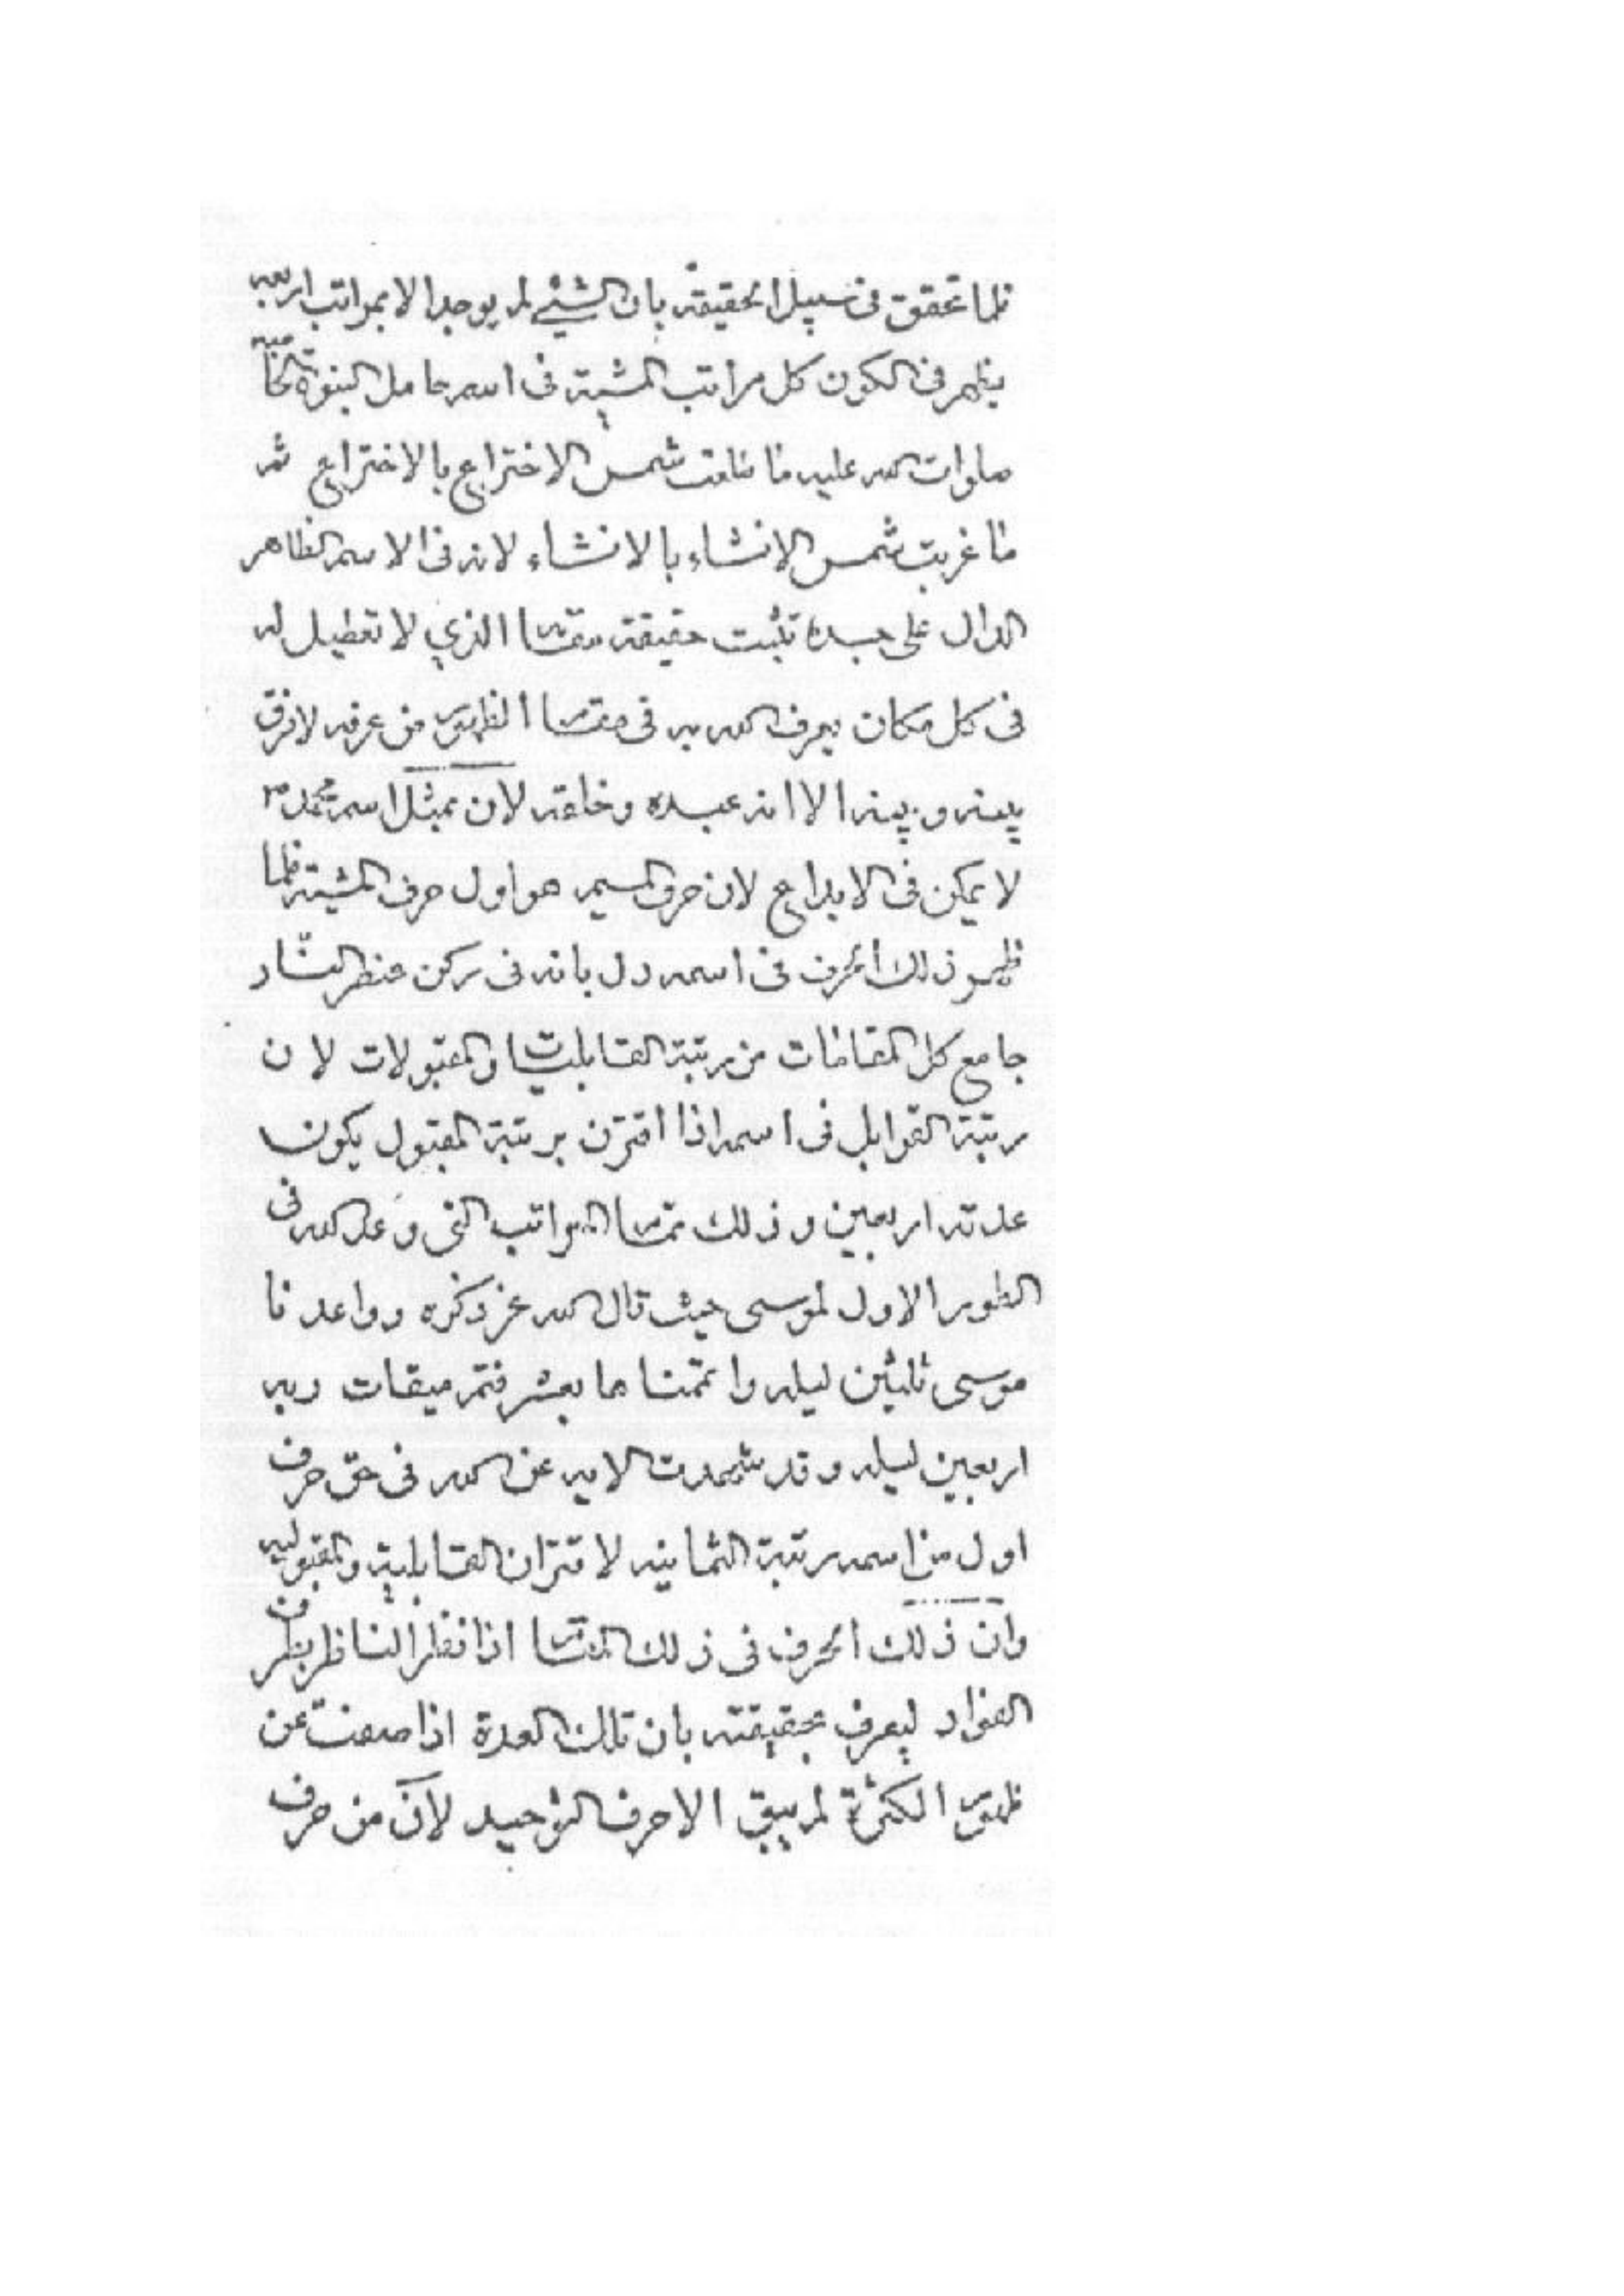 فلما تحقق فی سبیل الحقیقة بان الشیٔ لم یوجد الا بمراتب اربعه
یظهر فی الکون کل مراتب المشیة فی اسم حامل النبوة الخاصه
صلوات الله علیه ما طلعت شمس الاختراع بالاختراع ثم
ما غربت شمس الانشاء بالانشاء لانه فی الاسم الظاهر
الدال علی جسده تثبت حقیقة مقام الذی لا تعطیل له
فی کل مکان یعرف الله به فی مقام الظهور من عرفه لا فرق
بینه و بینها الا انه عبده و خلقه لان بمثل اسم محمد ص
لا یمکن فی الابداع لان حرف المیم هو اول حرف المشیة فلما
ظهر ذلک الحرف فی اسمه دل بانه فی رکن عنصر النار
جامع کل المقامات من رتبة القابلیات والمقبولات لان
رتبة القوابل فی اسمه اذا اقترن برتبة المقبول یکون
عدته اربعین و ذلک تمام المراتب التی وعد الله فی
الطور الاول لموسی حیث قال الله عز ذکره و واعدنا
موسی ثلثین لیله و اتممناها بعشر فتم میقات ربه
اربعین لیله و قد شهدت الایه عن الله فی حق حرف
اول من اسمه رتبة الثمانیه لاقتران القابلیة والمقبولیه
وان ذلک الحرف فی ذلک المقام اذا نظر الناظر بطرف
الفؤاد لیعرف بحقیقته بان تلک العدة اذا صفت عن
ظهور الکثرة لم یبق الا حرف التوحید لان من حرف